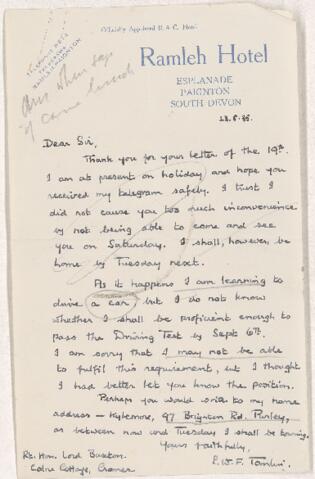 Officially Appointed R.A.C. Hotel
TELEPHONE
Ramleh Hotel
ESPLANADE
PAIGNTON
SOUTH DEVON
Dear Sir,
Thank you for your letter of the 19th.
I am at present on holiday and hope you
received my telegram safely. I trust I
did not cause you too much inconvenience
by not being able to come and see
you on Saturday. I shall, however be
home by Tuesday next.
As it happens I am learning to
drive a car, but I do not know
whether I shall be proficient enough to
pass the Driving Test by Sept 6th.
I am sorry that I may not be able
to fulfil this requirement, but I thought
I had better let you know the position.
Perhaps you would write to my home
address – Kylemore, 97 Brighton Rd. Purley,
as between now and Tuesday I shall be touring.
Yours faithfully,
E.W.F. Tomlin.
Rt. Hon. Lord Buxton.
Colne Cottage, Cromer